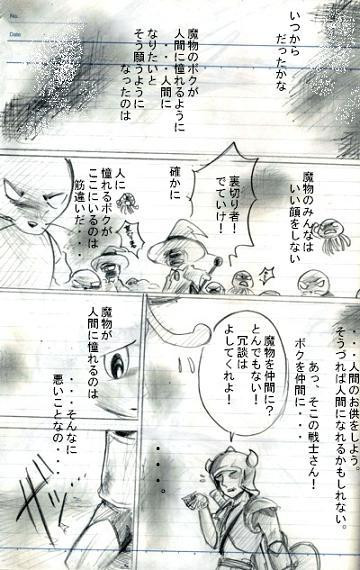 No.
Date
いつから
だったかな
魔物のボクが
人間に憧れるように
・・・・人間に
なりたいと
そう願うように
なったのは
魔物のみんなは
いい顔をしない
裏切り者！
でていけ！
確かに
人に
憧れるボクが
ここにいるのは
筋違いだ・・・
・・・人間のお供をしよう。
そうづれば人間になれるかもしれない。
あっ、そこの戦士さん！
ボクを仲間に・・・
魔物を仲間に？
とんでもない！
冗談は
よしてくれよ！
・・・・。
魔物が
人間に憧れるのは
・・・そんなに
悪いことなの・・・・